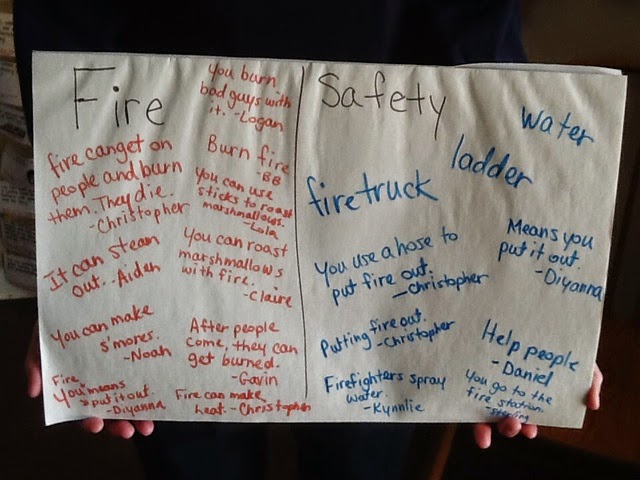 Fire
You burn
bad guys with
it. -Logan
fire can get on
people and burn
them. They die.
-Christopher
Burn fire
-BB
You can use
sticks to roast
marshmallows.
-Lola
It can steam
out. -Aiden
You can roast
marshmallows
with fire.
-Claire
You can make
s'mores.
-Noah
After people
come, they can
get burned.
-Gavin
Fire
You means
put it out.
-Diyanna
Fire can make
heat. -Christopher
Safety
Water
ladder
firetruck
Means you
put it out.
-Diyanna
You use a hose to
put fire out.
-Christopher
Putting fire out.
-Christopher
Help people
-Daniel
Firefighters spray
water.
-Kynnlie
You go to the
fire station.
-Sterling